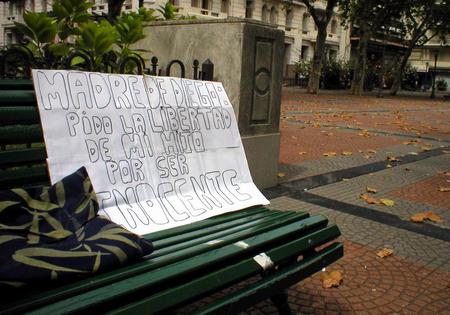 MADRE DE DIEGO:
PIDO LA LIBERTAD
DE MI HIJO
POR SER
INOCENTE